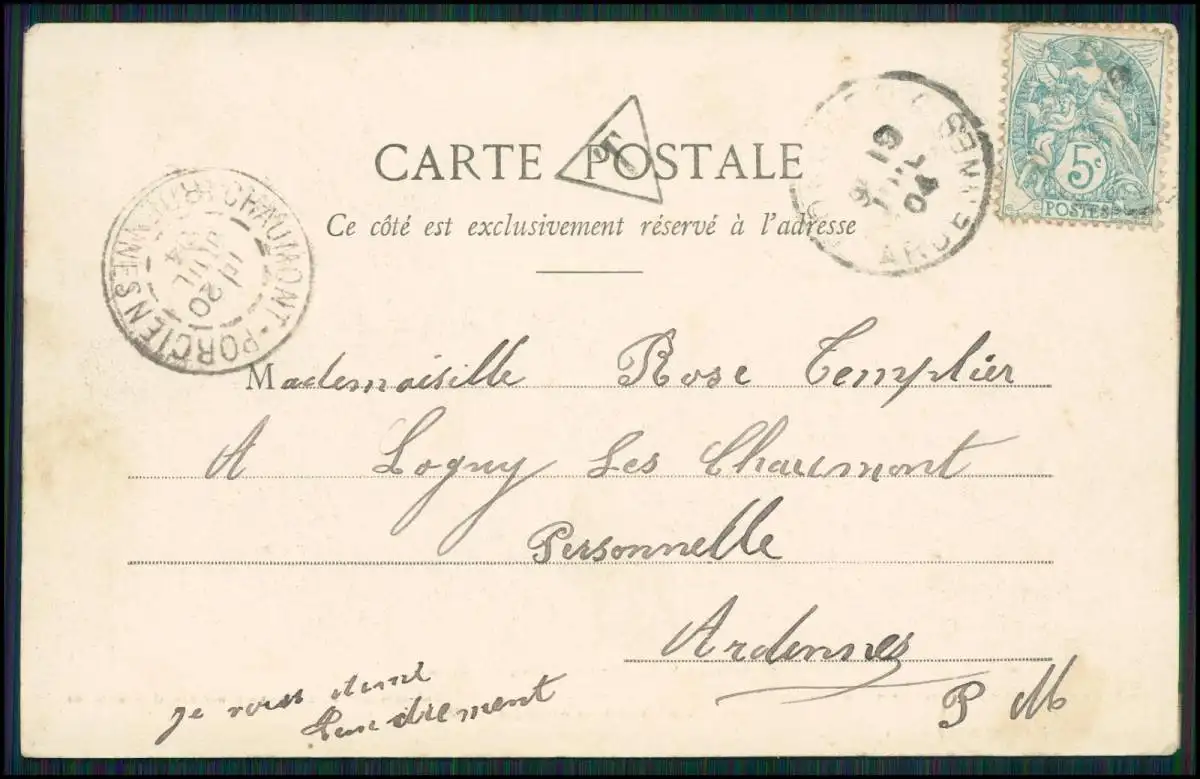 CARTE POSTALE
Ce côté est exclusivement réservé à l'adresse
5c
POSTES
19
04
ARDE
CHAUMONT-PORCIEN
20
Mademoiselle Rose Templier
A Logny Les Chaumont
Personnelle
Ardennes
P M
Je vous aime
tendrement